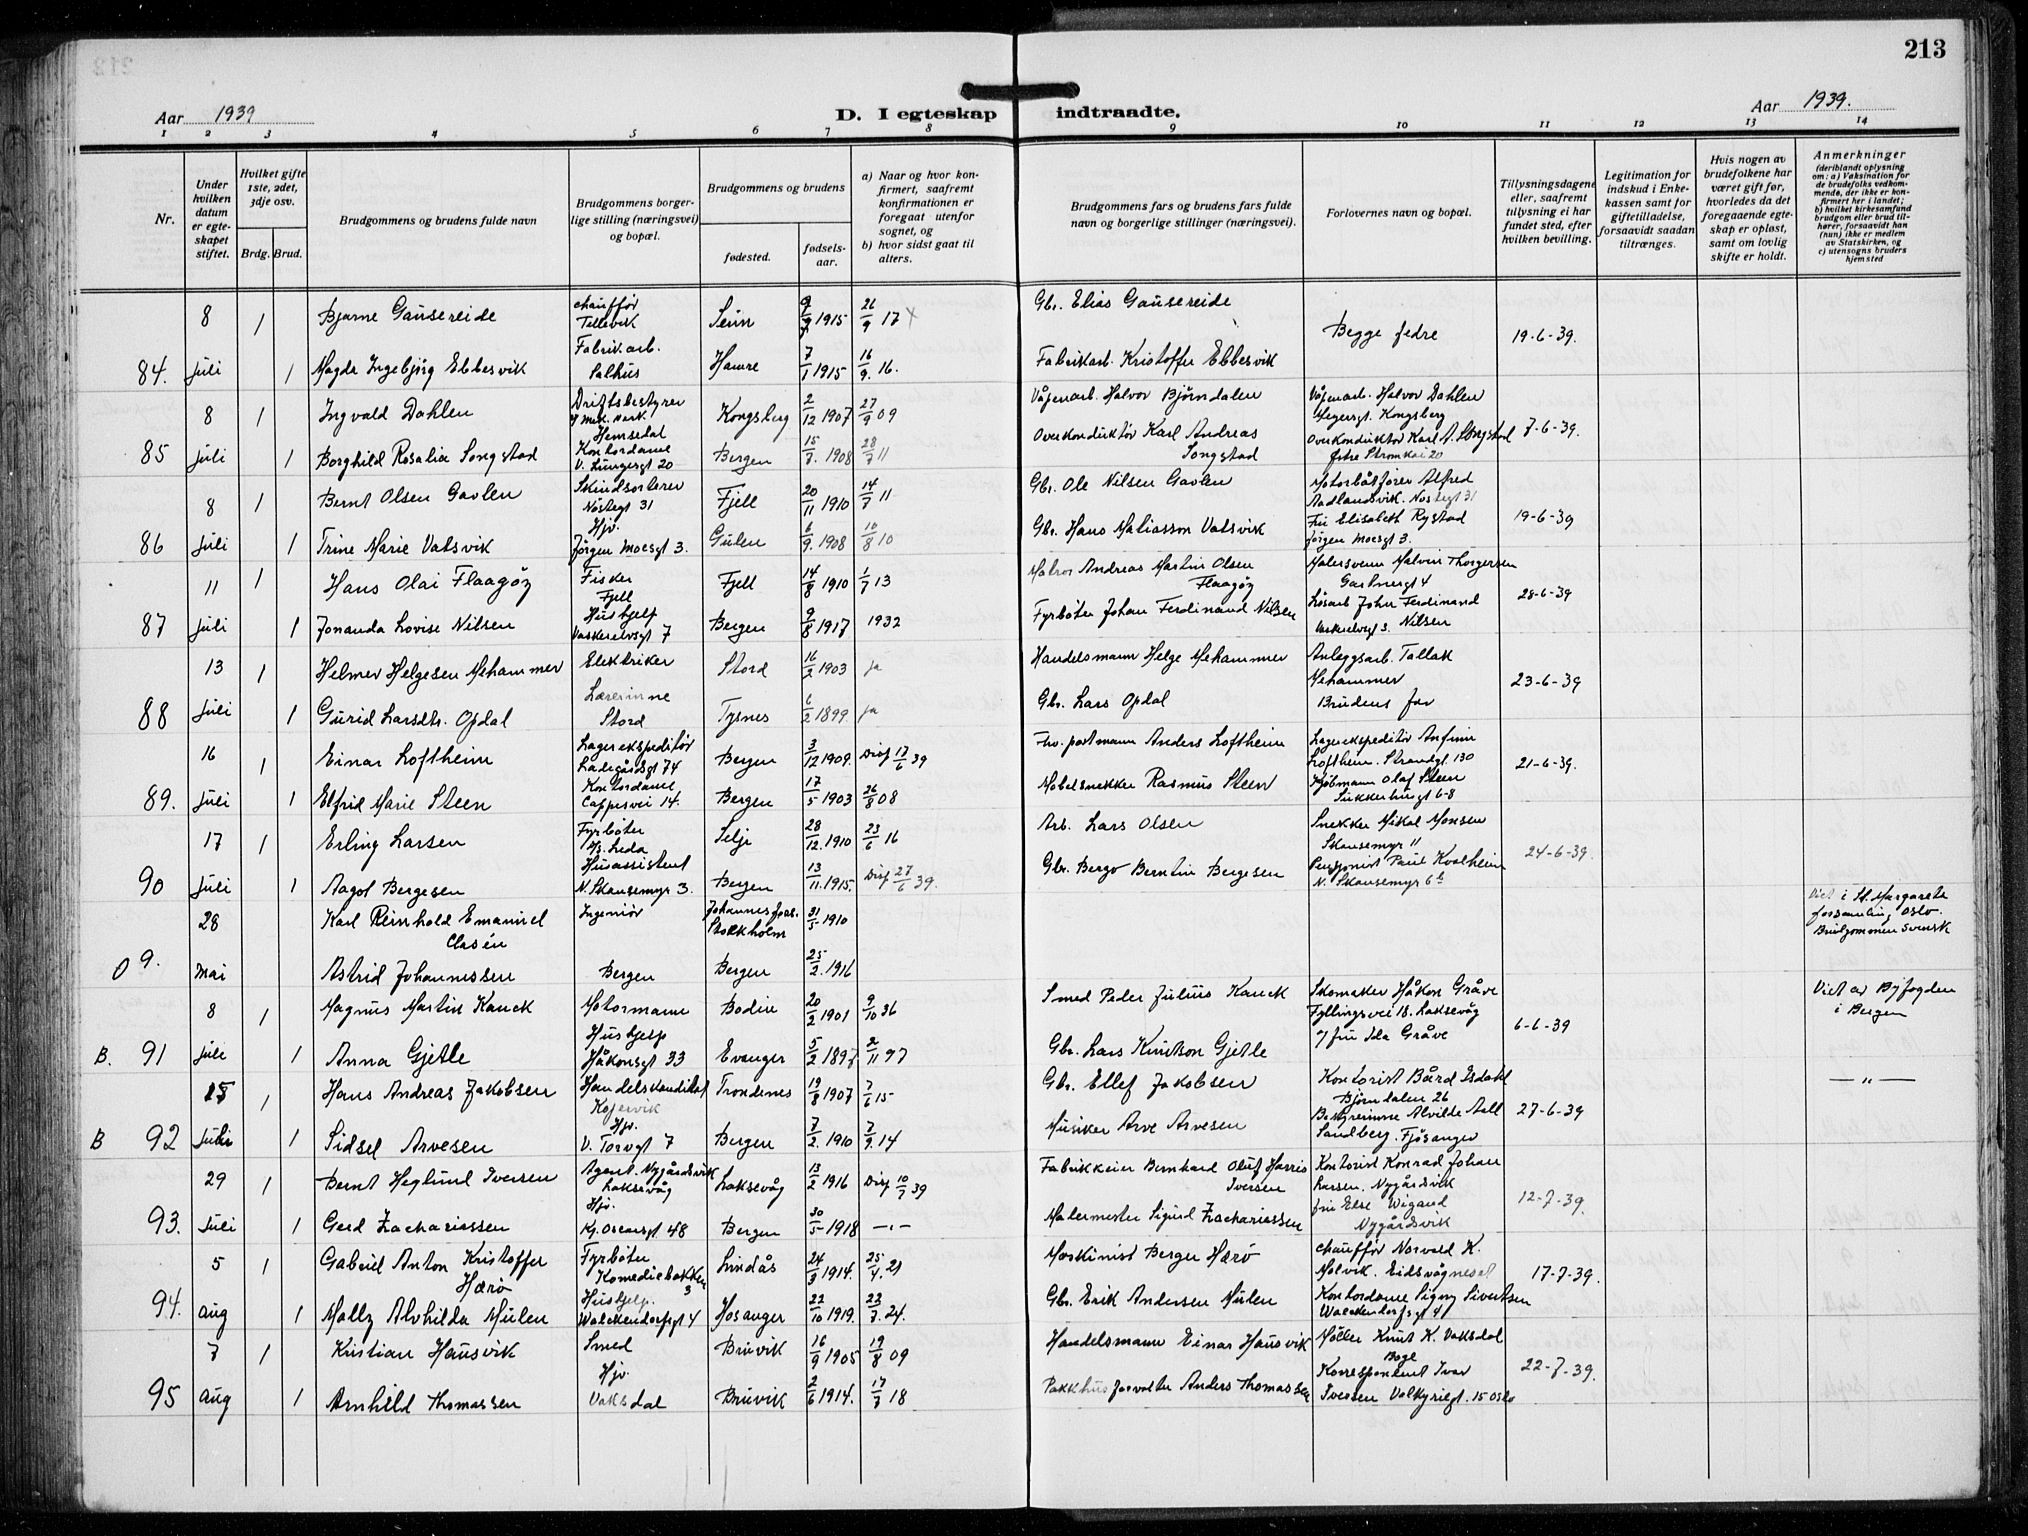 213
Aar 1939
D. I egteskap indtraadte.
Aar 1939.
1 2 3 4 5 6 7 8 9 10 11 12 13 14
Nr.
Under hvilken datum er egteskapet stiftet.
Hvilket gifte 1ste, 2det, 3dje osv.
Brdg. Brud.
Brudgommens og brudens fulde navn
Brudgommens borgerlige stilling (næringsvei) og bopæl.
Brudgommens og brudens
fødested.
fødselsaar.
a) Naar og hvor konfirmert, saafremt konfirmationen er foregaat utenfor sognet, og
b) hvor sidst gaat til alters.
Brudgommens fars og brudens fars fulde navn og borgerlige stillinger (næringsvei).
Forlovernes navn og bopæl.
Tillysningsdagene eller, saafremt tillysning ei har fundet sted, efter hvilken bevilling.
Legitimation for indskud i Enkekassen samt for giftetilladelse, forsaavidt saadan tiltrænges.
Hvis nogen av brudefolkene har været gift før, hvorledes da det foregaaende egteskap er opløst, samt om lovlig skifte er holdt.
Anmerkninger (deriblandt oplysning om: a) Vaksination for de brudefolks vedkommende, der ikke er konfirmert her i landet; b) hvilket kirkesamfund brudgom eller brud tilhører, forsaavidt han (hun) ikke er medlem av Statskirken, og c) utensogns bruders hjemsted
8 1 Bjarne Gausereide chauffør Tellevik 1915 26/9 17 Gbr. Elias Gausereide Begge fedre 19-6-39.
84. juli 1 Magda Ingebjørg Ebbesvik Fabrikarb. Salhus Hamre 7/1 1915 16/9. 16. Fabrikarb. Kristoffer Ebbesvik
8 1 Ingvald Dahlen Driftsbestyrer Hemsedal Kongsberg 2/12 1907 27/9 09 Våpenarb. Halvor Bjørndalen Våpenarb. Halvor Dahlen Kongsberg 7-6-39.
85 juli 1 Borghild Rosalia Songstad Kontordame V. Lungegt 20 Bergen 15/7. 1908 28/7 11 Overkonduktør Karl Andreas Songstad Overkonduktør Karl A. Songstad Strømkai 20
8 1 Bernt Olsen Gavlen Skindsorterer Nøstegt 31 Fjell 20/11 1910 14/7 11 Gbr. Ole Nilsen Gavlen Motorbåtfører Alfred Aadlandsvik. Nøstegt 31 19-6-39
86 juli 1 Trine Marie Vatsvik Hjv. Jørgen Moesgt 3. Gulen 6/9. 1908 10/8 10 Gbr. Hans Matiasson Vatsvik Fru Elisabeth Rystad Jørgen Moesgt 3.
11 1 Hans Olai Flaagøy Fisker Fjell Fjell 14/8 1910 1/7 13 Matros Andreas Martin Olsen Flaagøy Malersvenn Malvin Thorgersen Gartnergt 4 28-6-39
87 juli 1 Jonanda Lovise Nilsen Hushjelp Vaskerelvsgt 7 Bergen 9/8 1917 1932 Fyrbøter Johan Ferdinand Nilsen Løsarb John Ferdinand Nilsen Vaskerelvsgt 3.
13 1 Helmer Helgesen Mehammer Elektriker Stord 16/2 1903 ja Handelsmann Helge Mehammer Anleggsarb. Tallak Mehammer 23-6-39
88 juli 1 Gurid Larsdtr. Opdal Lærerinne Stord Tysnes 6/2 1899. ja Gbr. Lars Opdal Brudens far
16 1 Einar Loftheim Lagerekspeditør Ladegårdsgt 74 Bergen 3/12 1909. Disp 17/6 39 Fhv. postmann Anders Loftheim Lagerekspeditør Anfinn Loftheim. Strandgt. 130 21-6-39.
89. juli 1 Elfrid Marie Steen Kontordame Cappesvei 14. Bergen 17/5 1903 26/8 08 Møbelsnekker Rasmus Steen Kjøbmann Olaf Steen Sukkerhusgt 6-8
17 1 Erling Larsen Fyrbøter M/s. Leda Selje 28/12. 1910 23/6 16 Arb. Lars Olsen Snekker Mikal Monsen Skansemyr 11 24-6-39.
90 juli 1 Aagot Bergesen Husassistent N. Skansemyr 3. Bergen 13/11. 1915. Disp 27/6 39. Gbr. Bergo Berntin Bergesen Pensjonist Paul Kvalheim N. Skansemyr 6
28 Karl Reinhold Emanuel Clasén Ingeniør Johannes fors. Stockholm 31/5 1910 Viet i St. Margareta forsamling Oslo. Brudgommen svensk
0 9. mai Astrid Johannessen Bergen Bergen 25/2. 1916
8 1 Magnus Martin Kanck Motormann Bodin 20/2 1901 9/10 36 Smed Peder Julius Kanck Skomaker Håkon Gråve Fyllingsvei 18. Laksevåg 6-6-39 Viet av Byfogden i Bergen
B. 91 juli 1 Anna Gjetle Hushjelp Håkonsgt 33 Evanger 5/2 1897 Gbr. Lars Knutson Gjetle fru Ida Gråve
15 1 Hans Andreas Jakobsen Handelskandidat Trondenes 19/8 1907 7/6 15 Gbr. Ellef Jakobsen Kontorist Bård Isdahl Bjørndalen 26 27-6-39 —„—
B 92 Juli 1 Sidsel Arvesen Hjv. V. Torvgt 7 Bergen 7/2. 1910 7/9. 14 Musiker Arve Arvesen Bestyrerinne Alvilde Aall Sandberg. Fjøsanger
29 1 Bernt Heglund Iversen Agent. Nygårdsvik Laksevåg Laksevåg 13/2 1916 Disp 10/7 39 Fabrikkeier Bernhard Oluf Harris Iversen Kontorist Konrad Johan Larsen. Nygårdsvik 12-7-39.
93. juli 1 Gerd Zachariassen Hjv. Kg. Oscarsgt 48 Bergen 30/5 1918 —„— Malermester Sigurd Zachariassen fru Else Wigand Nygårdsvik
5 1 Gabriel Anton Kristoffer Hærø Fyrbøter Komediebakken 3 Lindås 24/3 1914. 25/4. 21 Maskinist Berger Hærø chauffør Norvald K. Molvik. Eidsvågneset 17-7-39.
94. aug 1 Mally Alvhilda Mulen Hushjelp. Walckendorfsgt 4 Hosanger 22/10 1919. 22/7. 24. Gbr. Erik Andersen Mulen Kontordame Signy Sivertsen Walckendorfsgt 4
7 1 Kristian Hausvik Smed Bruvik 16/9 1905 19/8 09 Handelsmann Einar Hausvik Møller Knut K. Vaksdal 22-7-39.
95 aug 1 Arnhild Thomassen Hjv. Vaksdal Bruvik 2/6 1914. 17/7 18 Pakkhusforvalter Anders Thomassen Korrespondent Ivar Iversen Valkyriegt. 15 Oslo